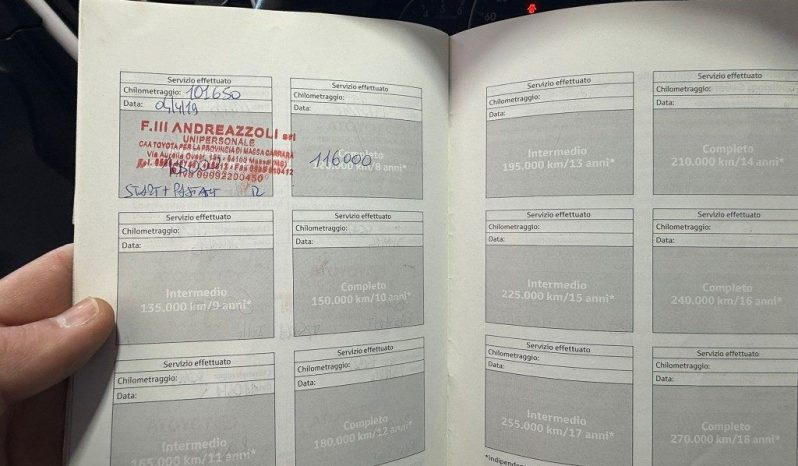 Servizio effettuato
Chilometraggio: 101650
Data: 04/4/19
F.lli ANDREAZZOLI srl
UNIPERSONALE
CAA TOYOTA PER LA PROVINCIA DI MASSA CARRARA
Via Aurelia Ovest,
START +
Servizio effettuato
Chilometraggio:
Data:
Completo
116000
km/8 anni*
Servizio effettuato
Chilometraggio:
Data:
Intermedio
135.000 km/9 anni*
Servizio effettuato
Chilometraggio:
Data:
Completo
150.000 km/10 anni*
Servizio effettuato
Chilometraggio:
Data:
Intermedio
165.000 km/11 anni*
Servizio effettuato
Chilometraggio:
Data:
Completo
180.000 km/12 anni*
Servizio effettuato
Chilometraggio:
Data:
Intermedio
195.000 km/13 anni*
Servizio effettuato
Chilometraggio:
Data:
Completo
210.000 km/14 anni*
Servizio effettuato
Chilometraggio:
Data:
Intermedio
225.000 km/15 anni*
Servizio effettuato
Chilometraggio:
Data:
Completo
240.000 km/16 anni*
Servizio effettuato
Chilometraggio:
Data:
Intermedio
255.000 km/17 anni*
Servizio effettuato
Chilometraggio:
Data:
Completo
270.000 km/18 anni*